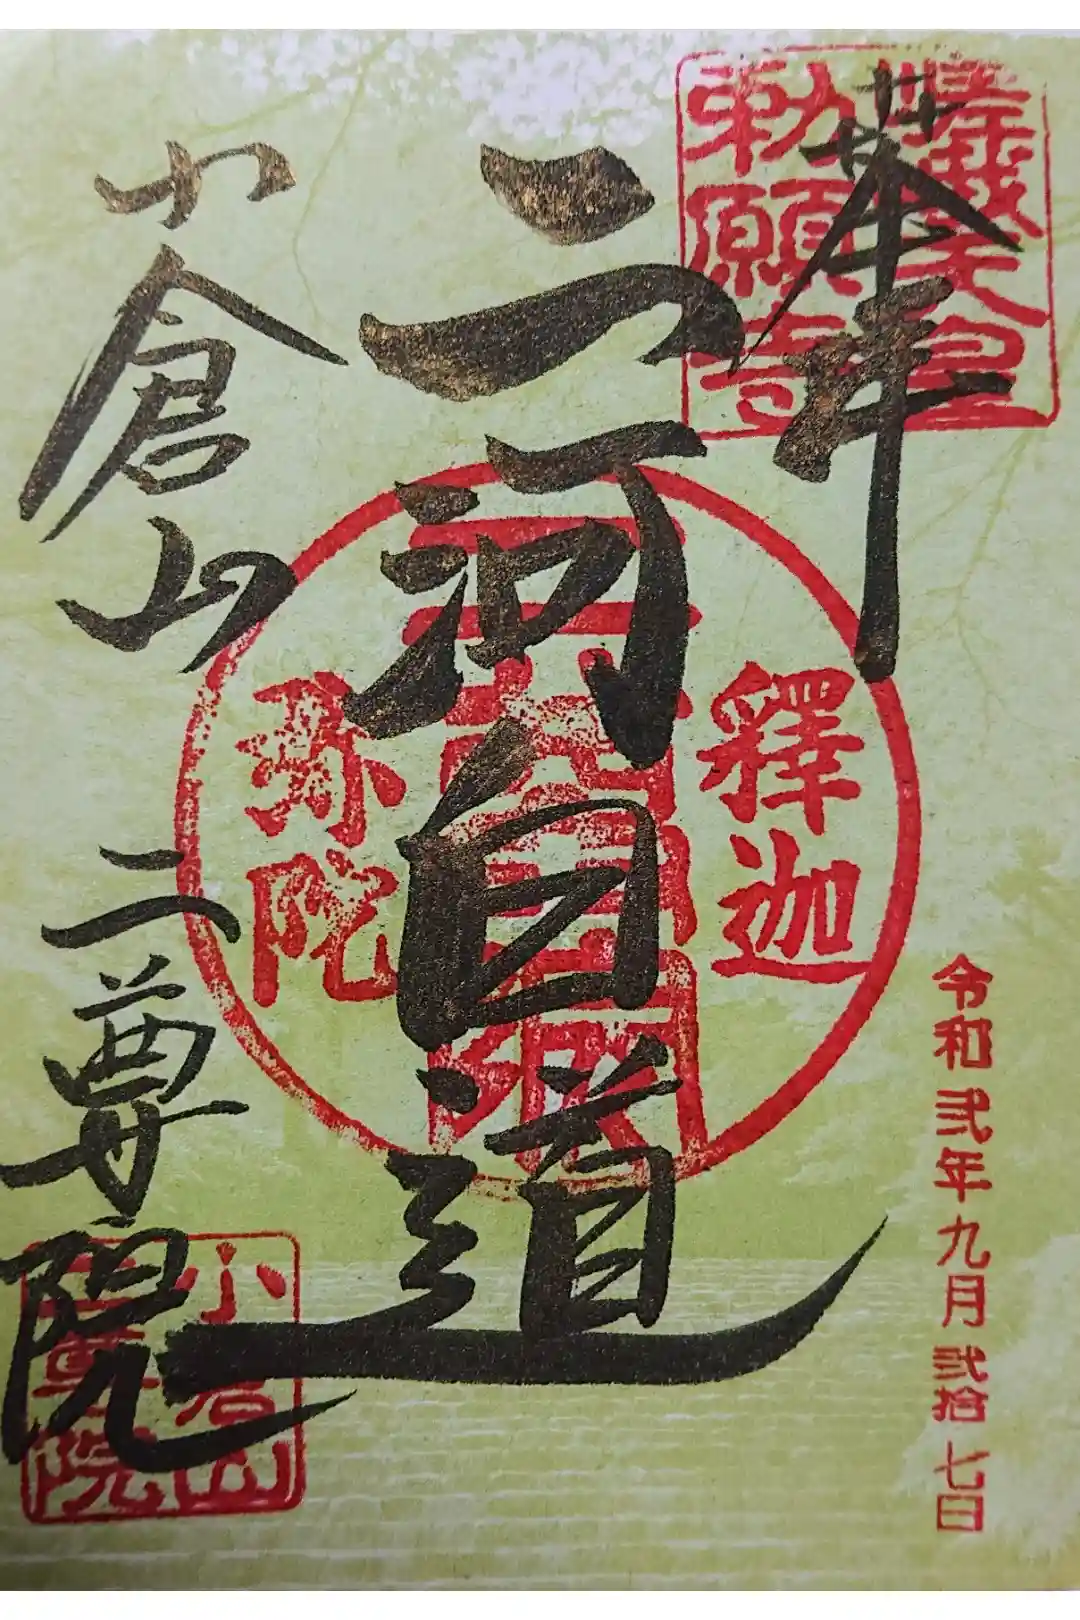 奉拝
嵯峨天皇
勅願寺
令和弐年九月弐拾七日
二河白道
釋迦
弥陀
小倉山 二尊院
小倉山
二尊院